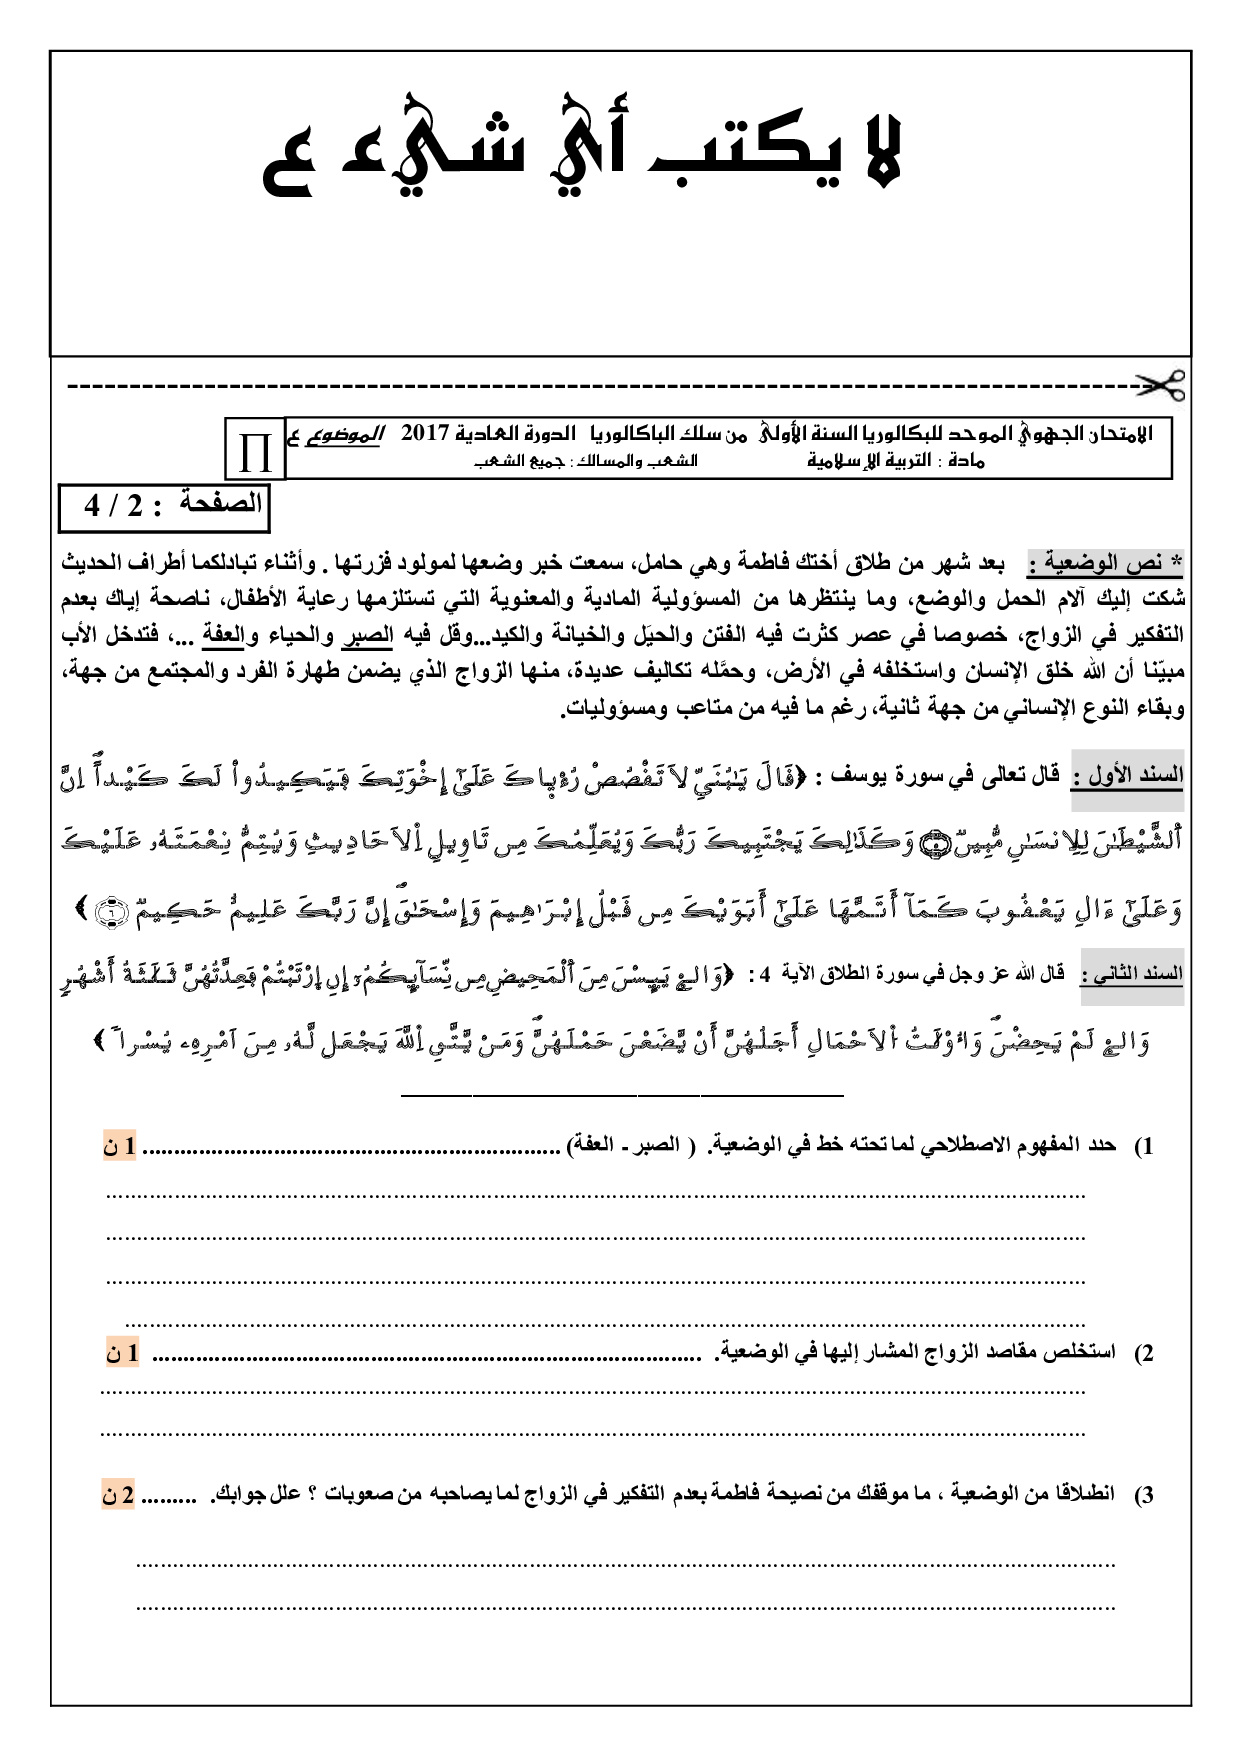 لا يكتب أي شيء ع
الامتحان الجهوي الموحد للبكالوريا السنة الأولى من سلك الباكالوريا الدورة العادية 2017 الموضوع ع
مادة : التربية الإسلامية الشعب والمسالك : جميع الشعب
∏
الصفحة : 2 / 4
* نص الوضعية : بعد شهر من طلاق أختك فاطمة وهي حامل، سمعت خبر وضعها لمولود فزرتها . وأثناء تبادلكما أطراف الحديث
شكت إليك آلام الحمل والوضع، وما ينتظرها من المسؤولية المادية والمعنوية التي تستلزمها رعاية الأطفال، ناصحة إياك بعدم
التفكير في الزواج، خصوصا في عصر كثرت فيه الفتن والحيَل والخيانة والكيد...وقل فيه الصبر والحياء والعفة ...، فتدخل الأب
مبيّنا أن الله خلق الإنسان واستخلفه في الأرض، وحمَّله تكاليف عديدة، منها الزواج الذي يضمن طهارة الفرد والمجتمع من جهة،
وبقاء النوع الإنساني من جهة ثانية، رغم ما فيه من متاعب ومسؤوليات.
السند الأول : قال تعالى في سورة يوسف : ﴿قَالَ يَٰبُنَيِّ لاَ تَقْصُصْ رُءْيٜاكَ عَلَىٰٓ إِخْوَتِكَ فَيَكِيدُواْ لَكَ كَيْداًۖ اِنَّ
اَ۬لشَّيْطَٰنَ لِلِانسَٰنِ عَدُوّٞ مُّبِينٞۖ ٥ وَكَذَٰلِكَ يَجْتَبِيكَ رَبُّكَ وَيُعَلِّمُكَ مِن تَاوِيلِ اِ۬لَاحَادِيثِ وَيُتِمُّ نِعْمَتَهُۥ عَلَيْكَ
وَعَلَىٰٓ ءَالِ يَعْقُوبَ كَمَآ أَتَمَّهَا عَلَىٰٓ أَبَوَيْكَ مِن قَبْلُ إِبْرَٰهِيمَ وَإِسْحَٰقَۖ إِنَّ رَبَّكَ عَلِيمٌ حَكِيمٞۖ ٦ ﴾
السند الثاني : قال الله عز وجل في سورة الطلاق الآية 4 : ﴿وَالےْ يَئِسْنَ مِنَ اَ۬لْمَحِيضِ مِن نِّسَآئِكُمُۥٓ إِنِ اِ۪رْتَبْتُمْ فَعِدَّتُهُنَّ ثَلَٰثَةُ أَشْهُرٖ
وَالےْ لَمْ يَحِضْنَۖ وَأُوْلَٰتُ اُ۬لَاحْمَالِ أَجَلُهُنَّ أَنْ يَّضَعْنَ حَمْلَهُنَّۖ وَمَنْ يَّتَّقِ اِ۬للَّهَ يَجْعَل لَّهُۥ مِنَ اَمْرِهِۦ يُسْراٗۖ ﴾
1) حدد المفهوم الاصطلاحي لما تحته خط في الوضعية. ( الصبر - العفة) .......... 1 ن
2) استخلص مقاصد الزواج المشار إليها في الوضعية. .......... 1 ن
3) انطلاقا من الوضعية ، ما موقفك من نصيحة فاطمة بعدم التفكير في الزواج لما يصاحبه من صعوبات ؟ علل جوابك. ......... 2 ن